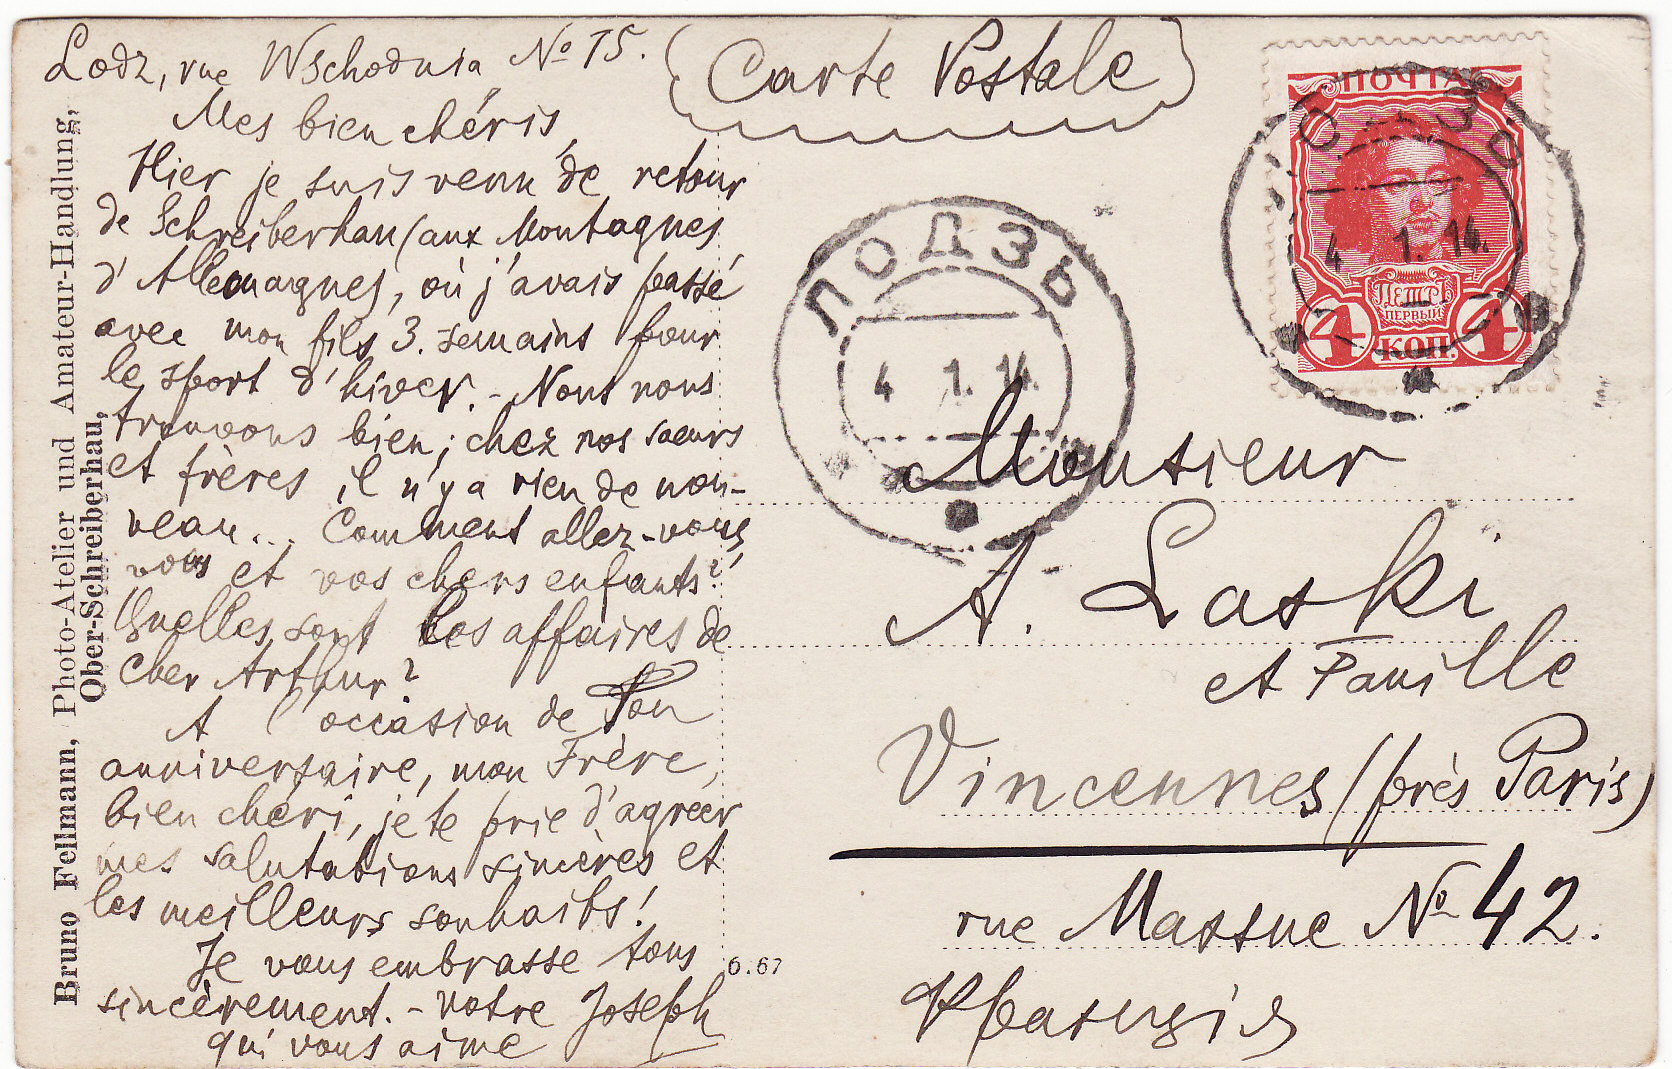 Lodz, rue Wschodnia № 15.
Mes bien chéris,
Hier je suis venu de retour
de Schreiberhau (aux Montagnes
d'Allemagnes, où j'avais passé
avec mon fils 3. semains pour
le sport d'hiver. - Nout nous
trouvons bien; chez nos soeurs
et frères il n'y a rien de nou-
veau... Comment allez-vous,
vous et vos chers enfants?
Quelles sont les affaires de
cher Arthur?
A l'occasion de Ton
anniversaire, mon Frère,
bien chéri, je te prie d'agréer
mes salutations sincères et
les meilleurs souhaits!
Je vous embrasse tous
sincèrement. - votre Joseph
qui vous aime
Carte Postale
Monsieur
A. Laski
et Famille
Vincennes (près Paris)
rue Massue № 42.
Франція
Bruno Fellmann, Photo-Atelier und Amateur-Handlung,
Ober-Schreiberhau,
6.67
ЛОДЗЬ
4 1. 14.
ПОЧТА
ПЕТРЪ
ПЕРВЫЙ
4 КОП. 4
ЛОДЗЬ
4 1. 14.